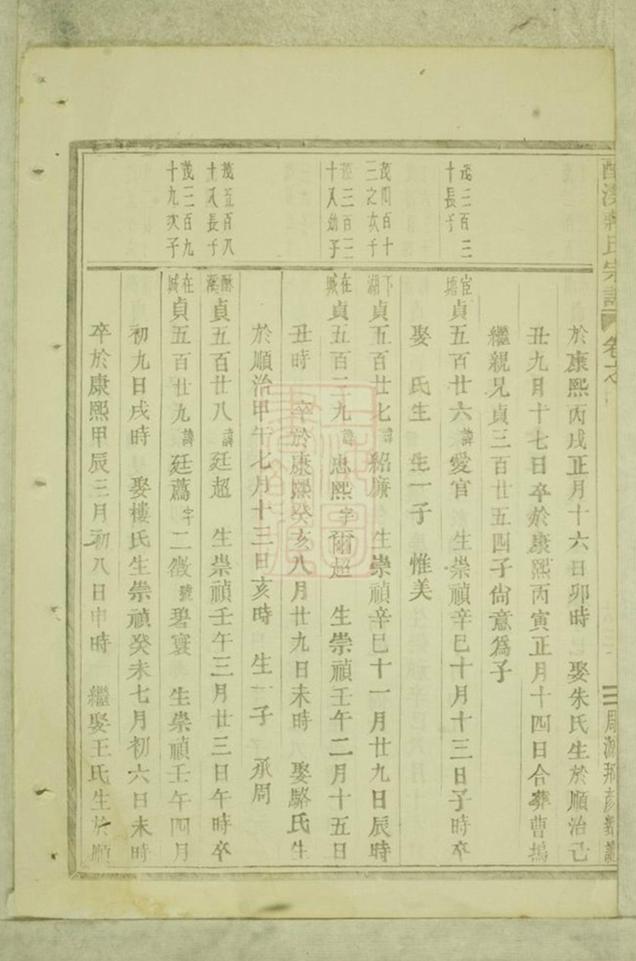 氏宗譜 卷之
於康熙丙戌正月十六日卯時 娶朱氏生於順治己
丑九月十七日卒於康熙丙寅正月十四日合葬曹塢
繼親兄貞三百廿五四子尚意爲子
茂三百三十長子
宦塘 貞五百廿六 諱愛官 生崇禎辛巳十月十三日子時卒
娶 氏生 生一子 惟美
茂四百十三之次子
下湖 貞五百廿七 諱紹廉 生崇禎辛巳十一月廿九日辰時
三百三十八幼子
在城 貞五百二九 諱忠熙 字爾超 生崇禎壬午二月十五日
丑時 卒於康熙癸亥八月廿九日未時 娶駱氏生
於順治甲午七月十三日亥時 生一子 承周
茂五百八十八長子
貞五百廿八 諱廷超 生崇禎壬午三月廿三日午時卒
茂三百九十九次子
在城 貞五百廿九 諱廷薦 字二徵 號碧寰 生崇禎壬午四月
初九日戌時 娶樓氏生崇禎癸未七月初六日未時
卒於康熙甲辰三月初八日申時 繼娶王氏生於順